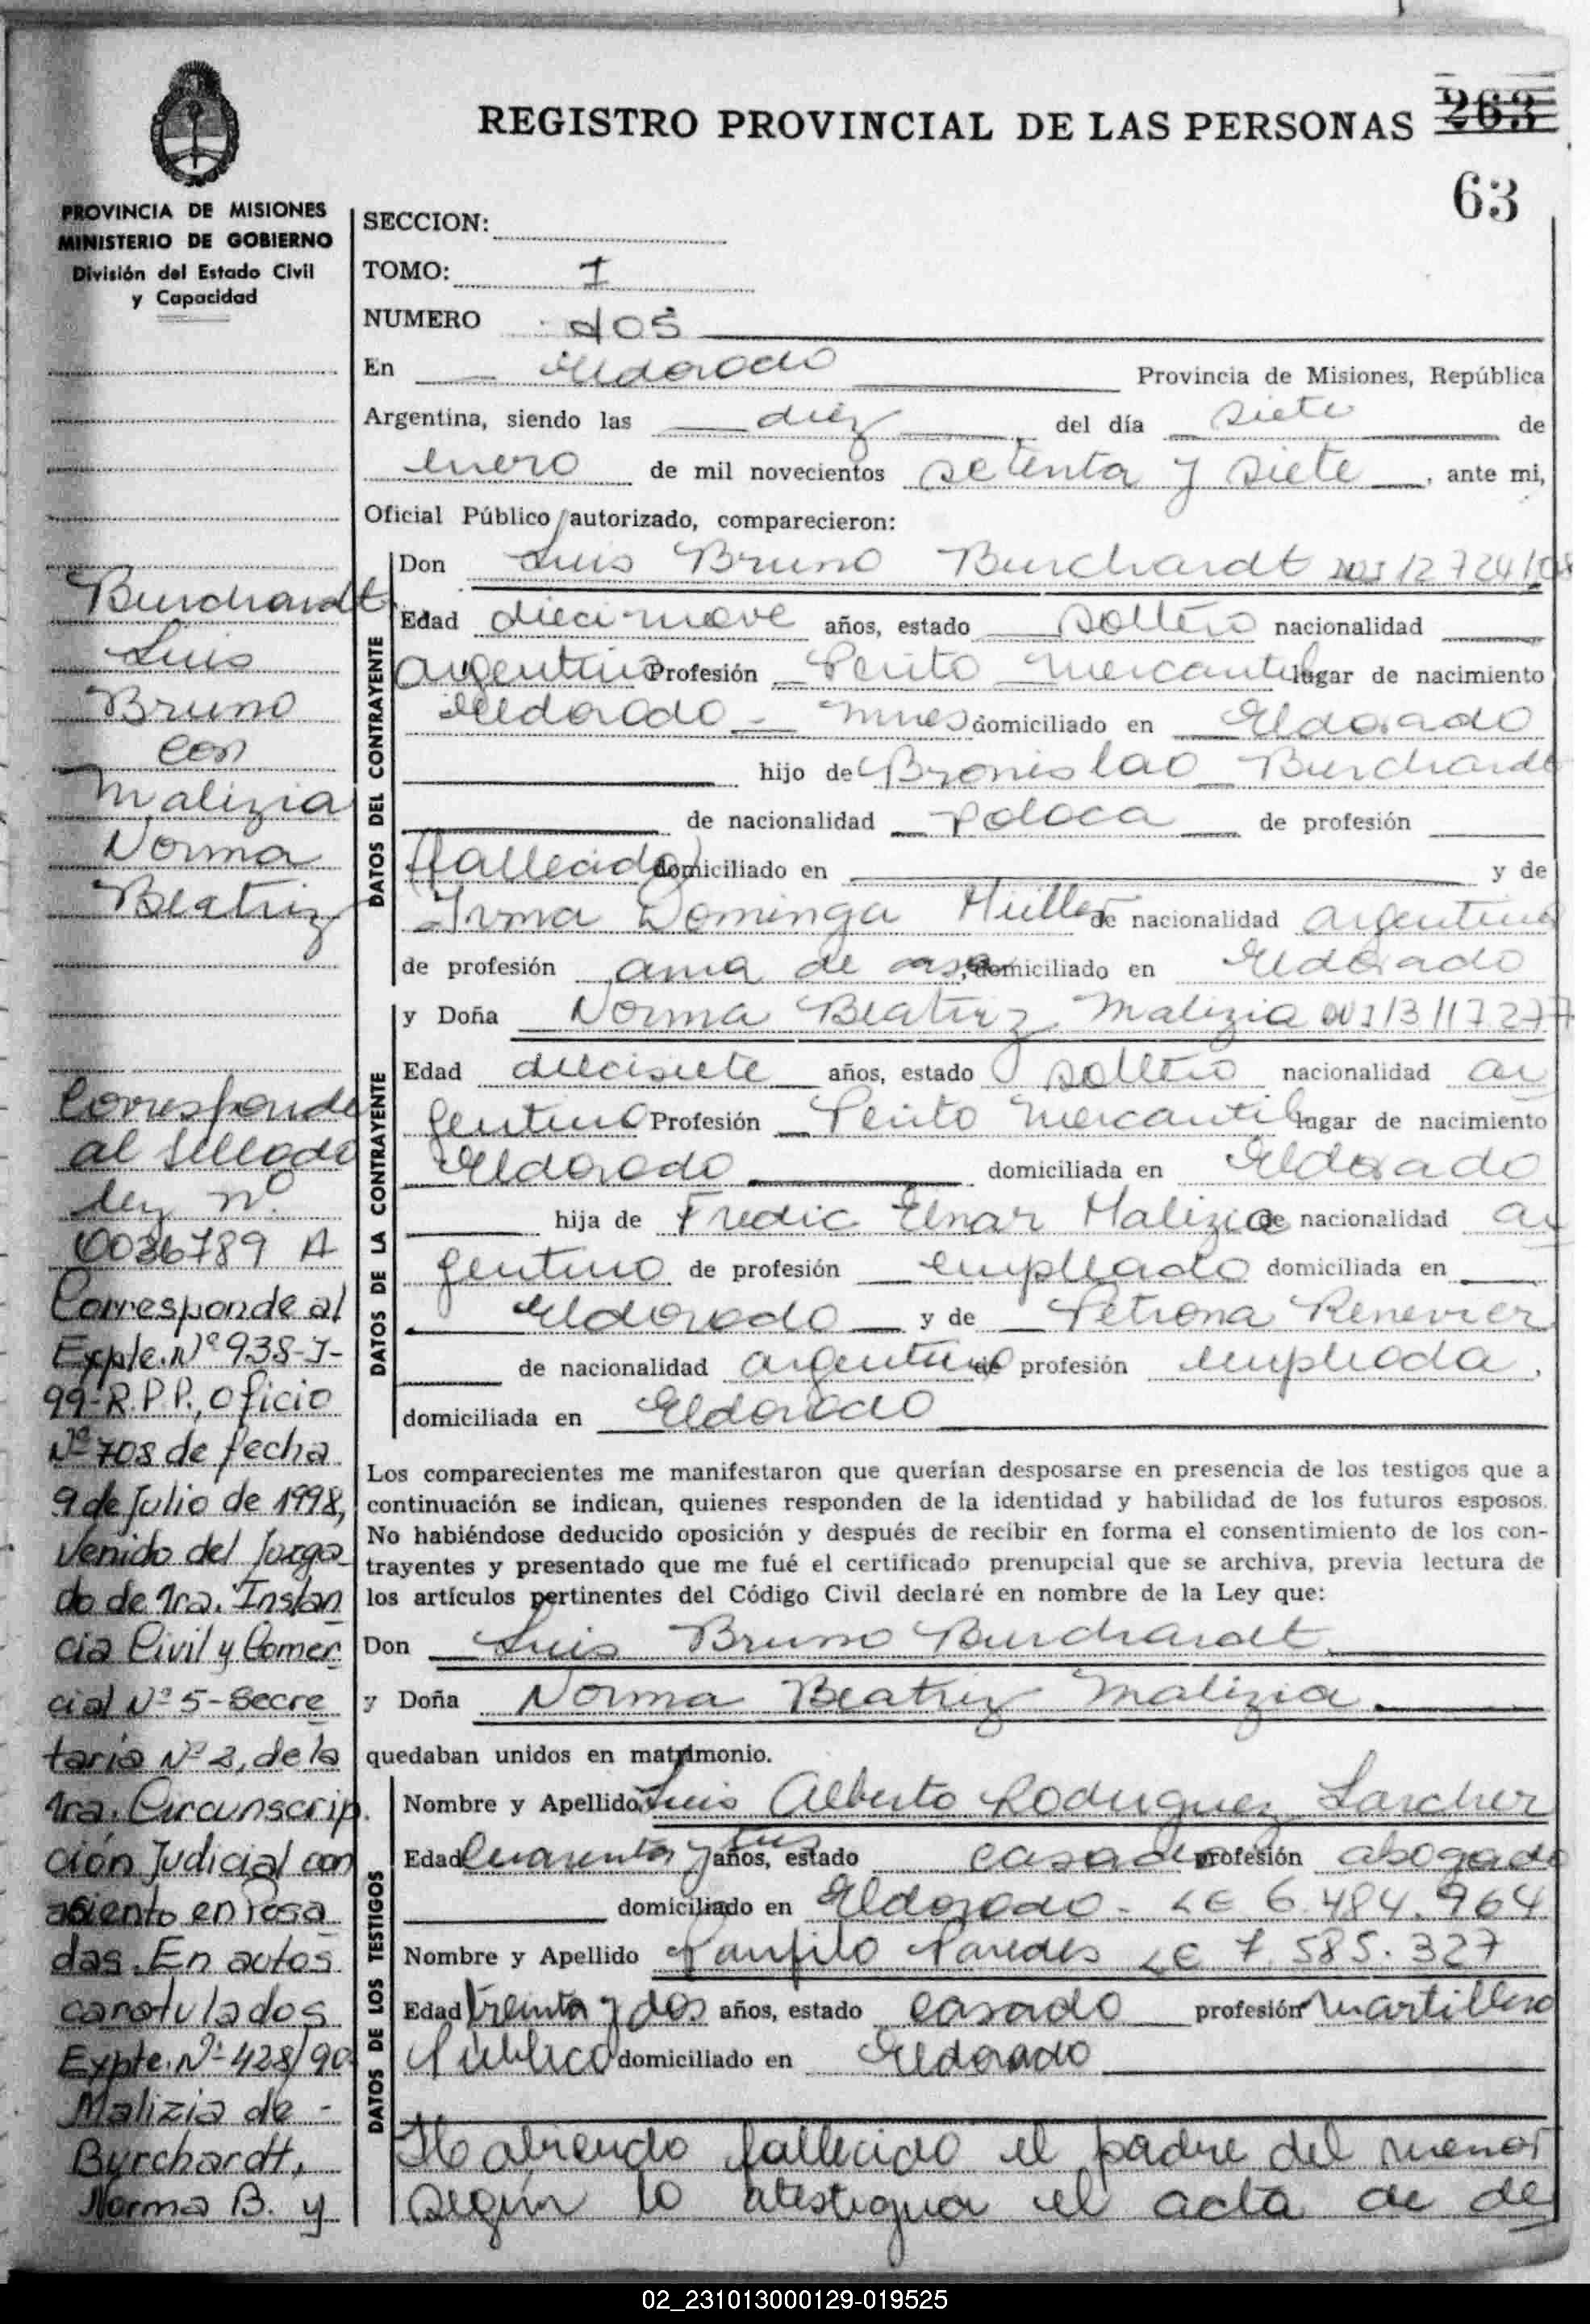 REGISTRO PROVINCIAL DE LAS PERSONAS 263
63
PROVINCIA DE MISIONES
MINISTERIO DE GOBIERNO
División del Estado Civil
y Capacidad
SECCION:
TOMO: I
NUMERO dos
En Eldorado Provincia de Misiones, República
Argentina, siendo las diez del día siete de
enero de mil novecientos setenta y siete, ante mi,
Oficial Público autorizado, comparecieron:
DATOS DEL CONTRAYENTE
Don Luis Bruno Burchardt DNI 12 724 108
Edad diecinueve años, estado soltero nacionalidad
argentino Profesión Perito Mercantil lugar de nacimiento
Eldorado - Mnes domiciliado en Eldorado
hijo de Bronislao Burchardt
de nacionalidad Polaca de profesión
(fallecido) domiciliado en y de
Irma Dominga Müller de nacionalidad argentina
de profesión ama de casa, domiciliado en Eldorado
DATOS DE LA CONTRAYENTE
y Doña Norma Beatriz Malizia DNI 13 117 277
Edad diecisiete años, estado soltero nacionalidad ar
gentino Profesión Perito Mercantil lugar de nacimiento
Eldorado domiciliada en Eldorado
hija de Fredic Elnar Malizia de nacionalidad ar
gentino de profesión empleado domiciliada en
Eldorado y de Petrona Renevier
de nacionalidad argentina de profesión empleada,
domiciliada en Eldorado
Los comparecientes me manifestaron que querían desposarse en presencia de los testigos que a
continuación se indican, quienes responden de la identidad y habilidad de los futuros esposos.
No habiéndose deducido oposición y después de recibir en forma el consentimiento de los con-
trayentes y presentado que me fué el certificado prenupcial que se archiva, previa lectura de
los artículos pertinentes del Código Civil declaré en nombre de la Ley que:
Don Luis Bruno Burchardt.
y Doña Norma Beatriz Malizia.
quedaban unidos en matrimonio.
DATOS DE LOS TESTIGOS
Nombre y Apellido Luis Alberto Rodriguez Larcher
Edad Cuarenta y tres años, estado casado profesión abogado
domiciliado en Eldorado - LE 6.484.964
Nombre y Apellido Panfilo Paredes LE 7.585.327
Edad treinta y dos años, estado casado profesión martillero
Público domiciliado en Eldorado
Habiendo fallecido el padre del menor
según lo atestigua el acta de de
Burchardt
Luis
Bruno
con
Malizia
Norma
Beatriz
Corresponde
al sellado
ley nº
0036789 A
Corresponde al
Expte. Nº 938-J-
99-R.P.P., oficio
Nº 708 de fecha
9 de Julio de 1998,
venido del Juzga
do de 1ra. Instan
cia Civil y Comer
cial Nº 5 - Secre
taria Nº 2, de la
1ra. Circunscrip.
ción Judicial con
asiento en Posa
das. En autos
carotulados
Expte. Nº 428/90
Malizia de -
Burchardt,
Norma B. y
02_231013000129-019525